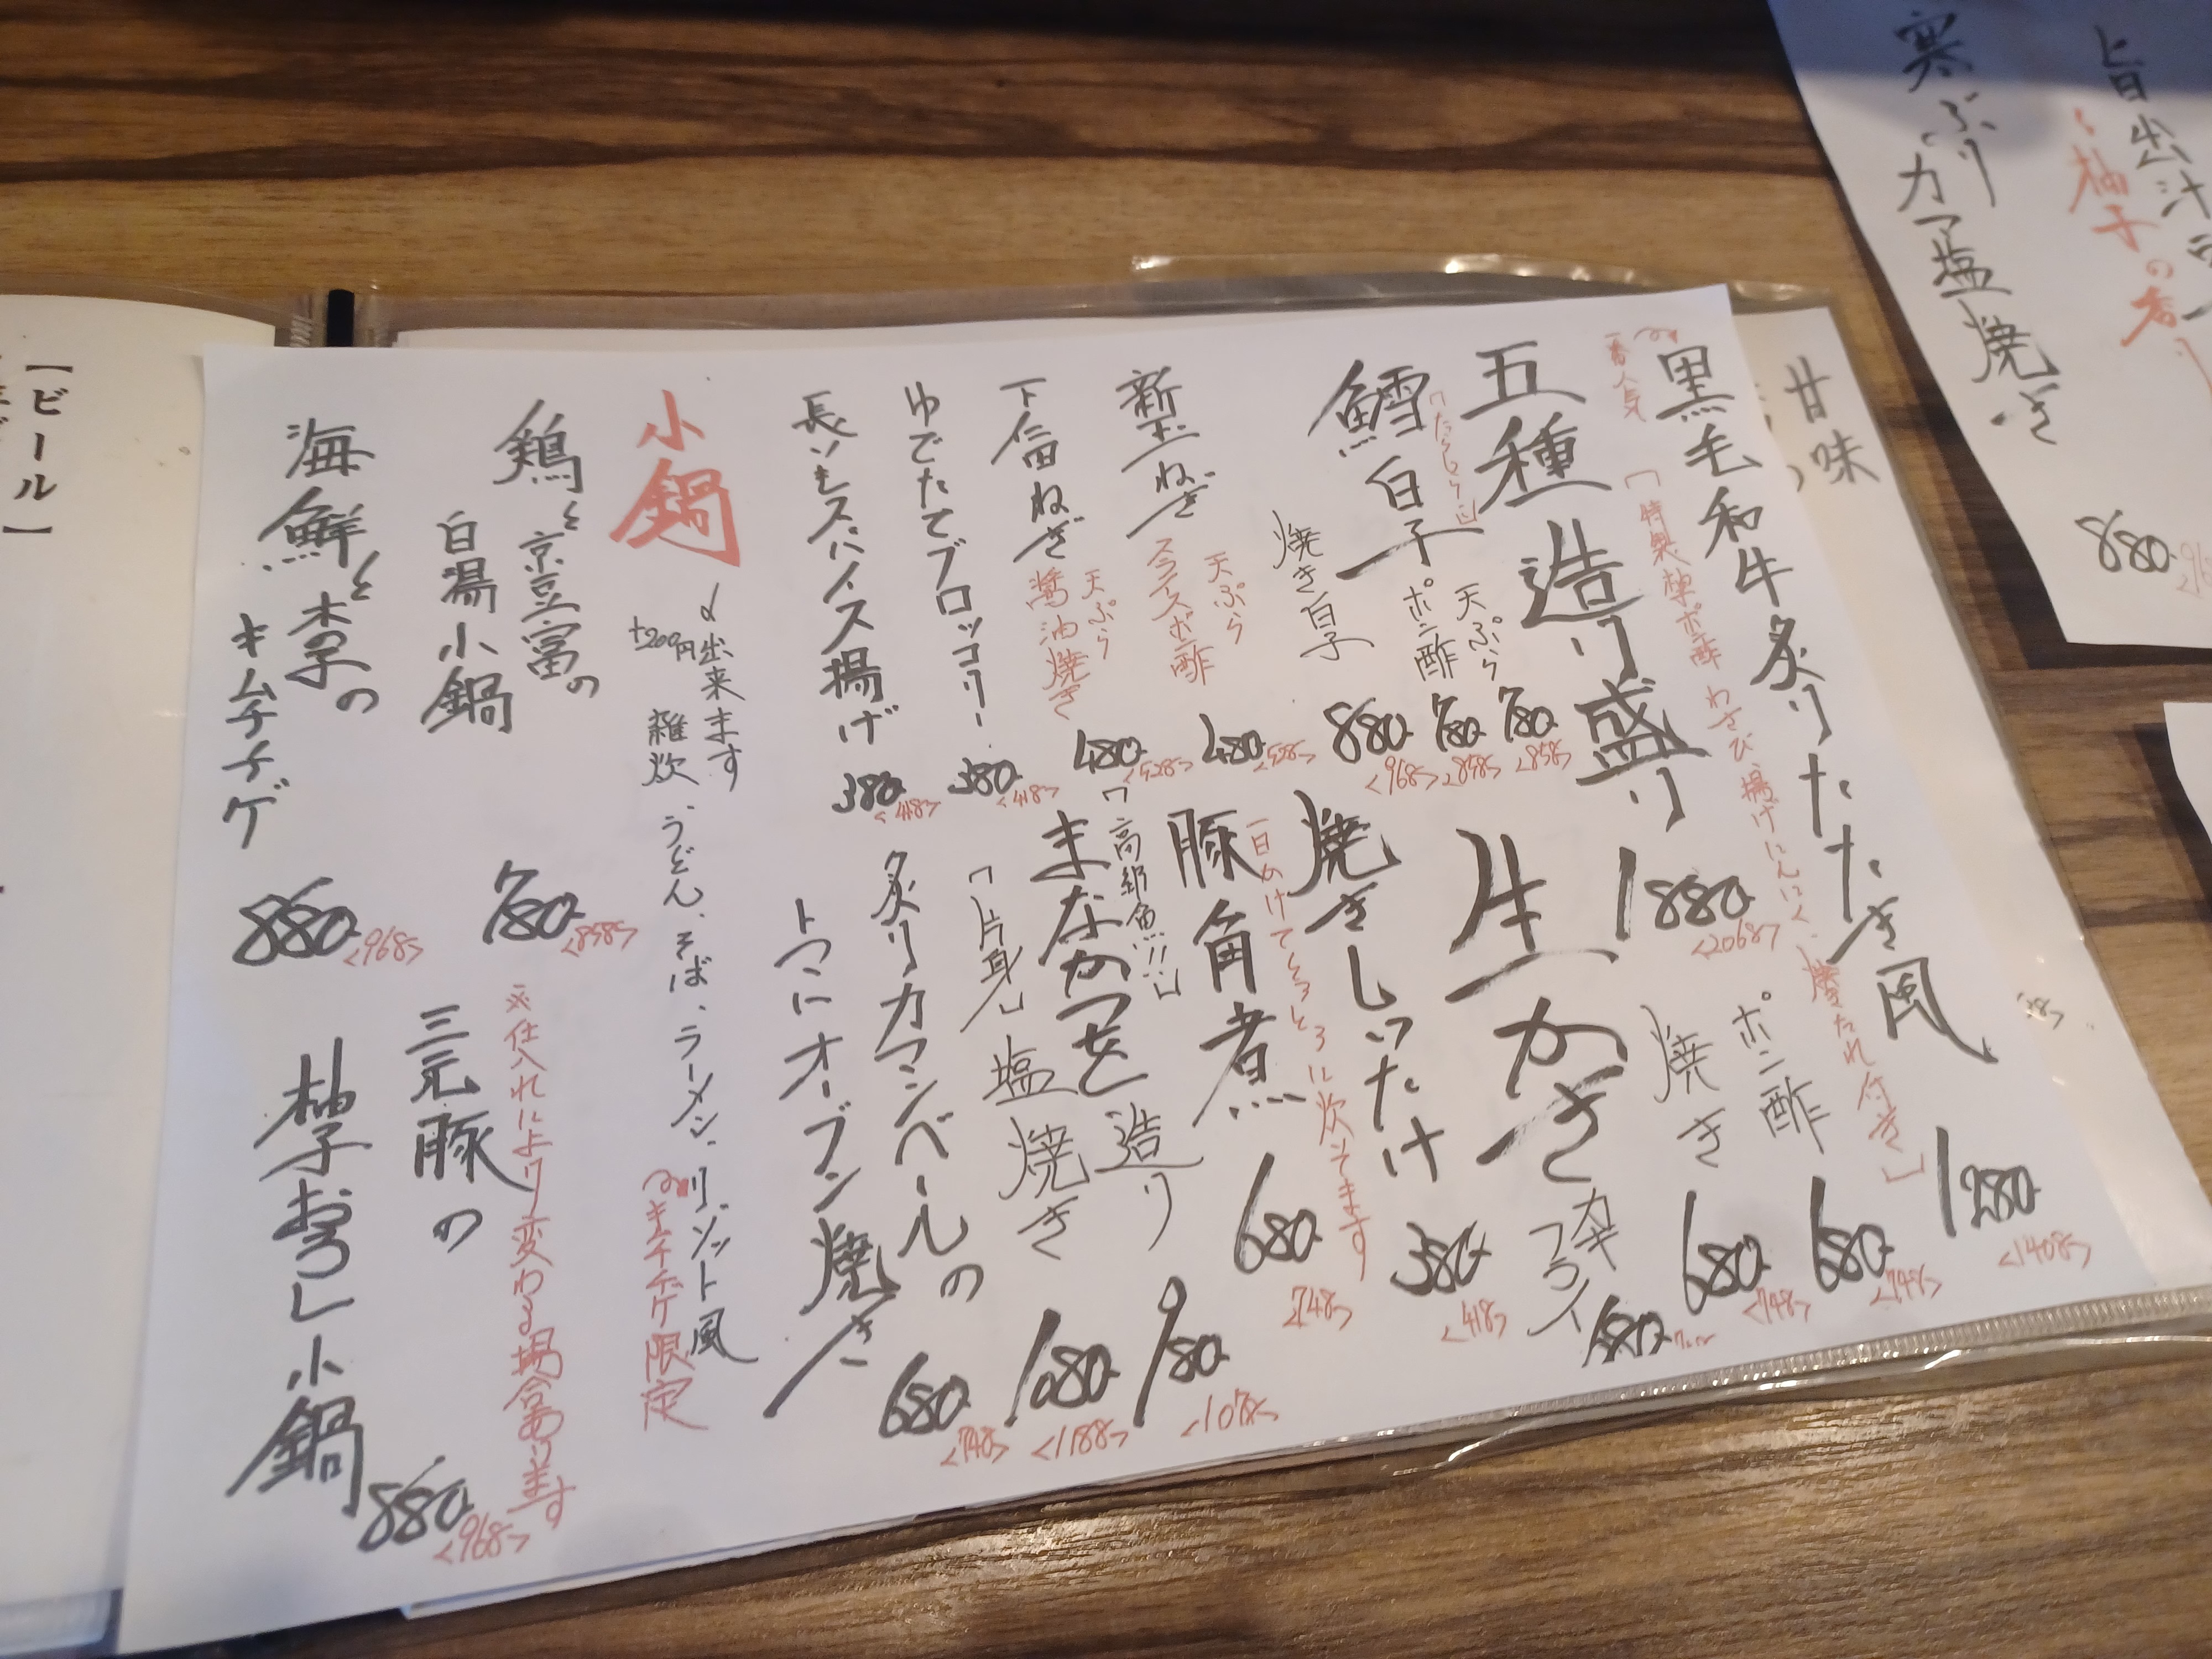 旨出汁
柚子の香り
寒ぶりカマ塩焼き
880
甘味
黒毛和牛炙りたたき風
1280
<1408>
一番人気
「特製柚ポン酢 わさび、揚げにんにく、焼きたれ付き」
五種造り盛り
1880
<2068>
「たらしらこ」
鱈白子
天ぷら
780
<858>
ポン酢
780
<858>
焼き白子
880
<968>
生かき
ポン酢
680
<748>
焼き
680
<748>
カキフライ
680
焼きしいたけ
380
<418>
新玉ねぎ
天ぷら
スライスポン酢
480
<528>
豚角煮
一日かけてとろとろに炊いてます
680
<748>
下仁田ねぎ
天ぷら
醤油焼き
480
<528>
「高級魚!!」
まながつを
造り
980
<1078>
「片身」塩焼き
1080
<1188>
ゆでたてブロッコリー
380
<418>
炙りカマンベールの
トマトにオーブン焼き
680
<748>
長いもスパイス揚げ
380
<418>
小鍋
〆出来ます
+200円
雑炊、うどん、そば、ラーメン、リゾット風
キムチチゲ限定
鶏と京豆富の
白湯小鍋
780
<858>
※仕入れにより変わる場合あります
三元豚の
柚子おろし小鍋
880
<968>
海鮮と
キムチチゲ
880
<968>
【ビール】